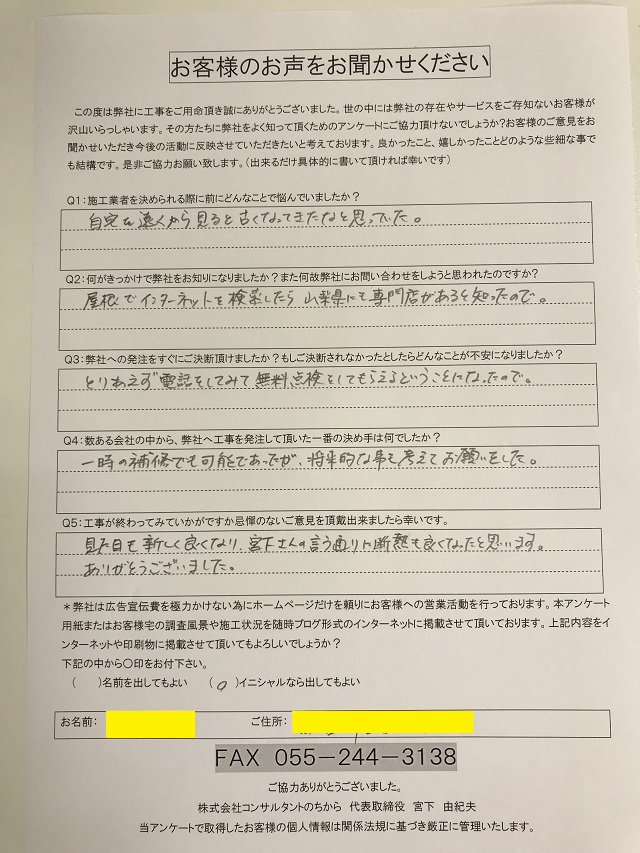 お客様のお声をお聞かせください
この度は弊社に工事をご用命頂き誠にありがとうございました。世の中には弊社の存在やサービスをご存知ないお客様が
沢山いらっしゃいます。その方たちに弊社をよく知って頂くためのアンケートにご協力頂けないでしょうか?お客様のご意見をお
聞かせいただき今後の活動に反映させていただきたいと考えております。良かったこと、嬉しかったことどのような些細な事で
も結構です。是非ご協力お願い致します。(出来るだけ具体的に書いて頂ければ幸いです)
Q1:施工業者を決められる際に前にどんなことで悩んでいましたか?
自宅を遠くから見ると古くなってきたなと思っていた。
Q2:何がきっかけで弊社をお知りになりましたか?また何故弊社にお問い合わせをしようと思われたのですか?
屋根でインターネットを検索したら山梨県にも専門店があると知ったので。
Q3:弊社への発注をすぐにご決断頂けましたか?もしご決断されなかったとしたらどんなことが不安になりましたか?
とりあえず電話をしてみて無料点検をしてもらえるということになったので。
Q4:数ある会社の中から、弊社へ工事を発注して頂いた一番の決め手は何でしたか?
一時の補修でも可能であったが、将来的な事も考えてお願いをした。
Q5:工事が終わってみていかがですか忌憚のないご意見を頂戴出来ましたら幸いです。
見た目も新しく良くなり、宮下さんの言う通りに断熱も良くなったと思います。
ありがとうございました。
*弊社は広告宣伝費を極力かけない為にホームページだけを頼りにお客様への営業活動を行っております。本アンケート
用紙またはお客様宅の調査風景や施工状況を随時ブログ形式のインターネットに掲載させて頂いております。上記内容をイ
ンターネットや印刷物に掲載させて頂いてもよろしいでしょうか?
下記の中から〇印をお付下さい。
( )名前を出してもよい (○)イニシャルなら出してもよい
お名前: ご住所:
FAX 055-244-3138
ご協力ありがとうございました。
株式会社コンサルタントのちから 代表取締役 宮下 由紀夫
当アンケートで取得したお客様の個人情報は関係法規に基づき厳正に管理いたします。